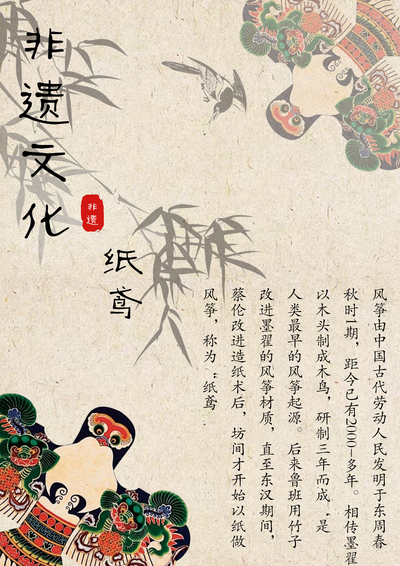 非遗文化
非遗
纸鸢
风筝由中国古代劳动人民发明于东周春
秋时1期，距今已有2000-多年。相传墨翟
以木头制成木鸟，研制三年而成，是
人类最早的风筝起源。后来鲁班用竹子
改进墨翟的风筝材质，直至东汉期间，
蔡伦改进造纸术后，坊间才开始以纸做
风筝，称为：“纸鸢